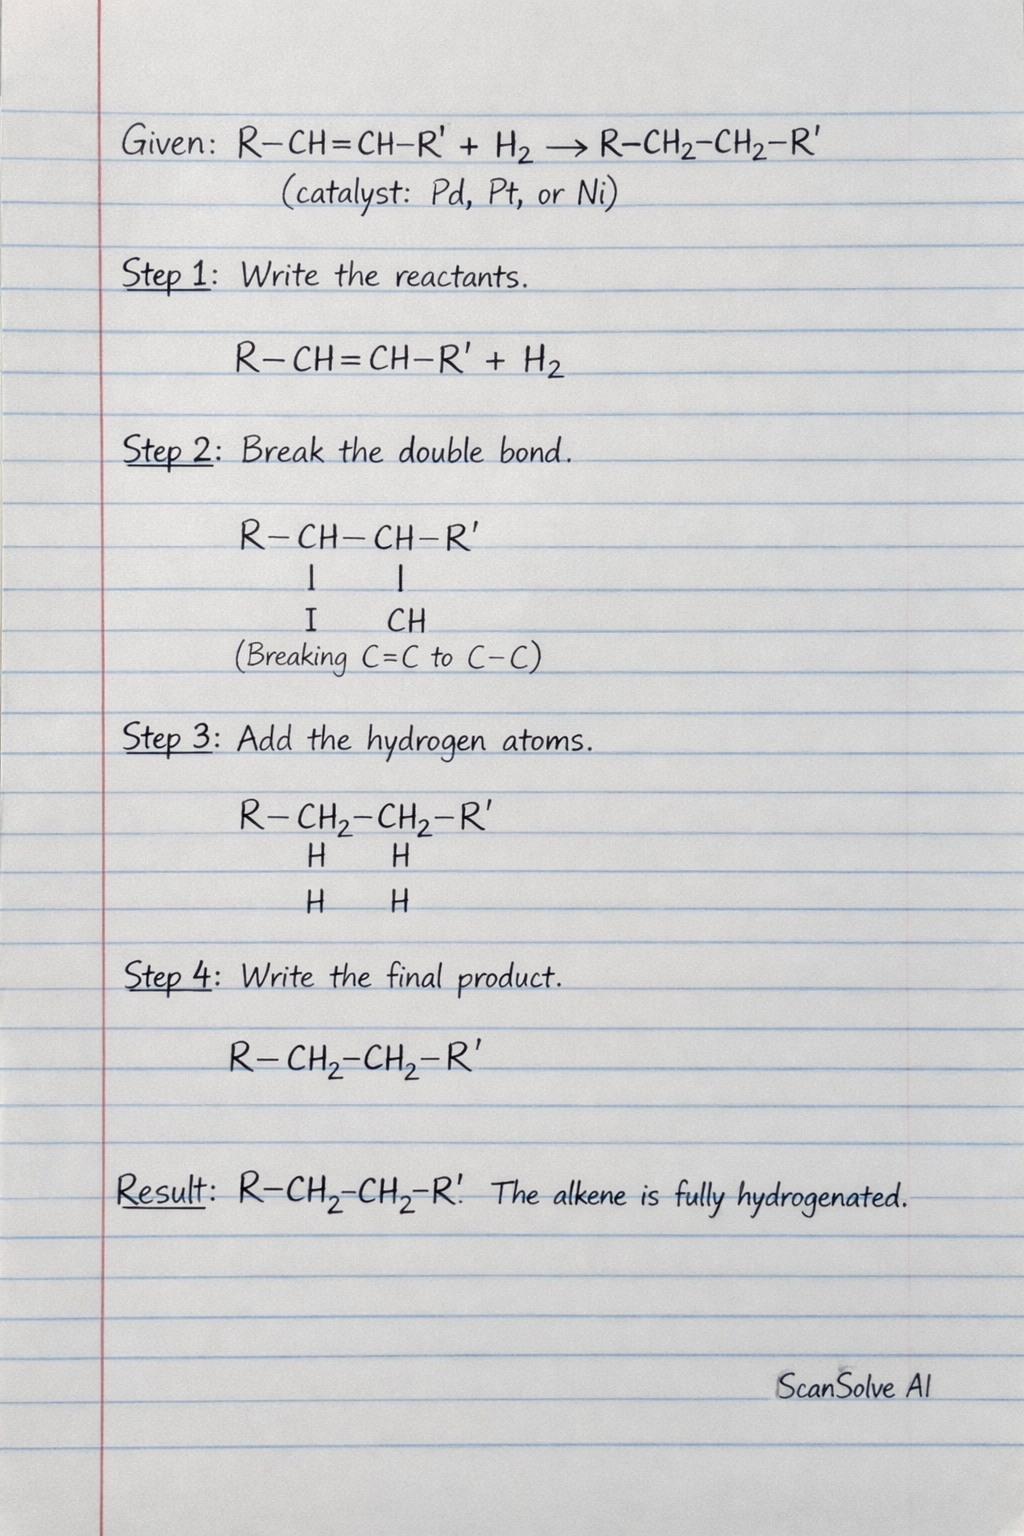 Given: R–CH=CH–R' + H₂ → R–CH₂–CH₂–R'
(catalyst: Pd, Pt, or Ni)
Step 1: Write the reactants.
R–CH=CH–R' + H₂
Step 2: Break the double bond.
R–CH–CH–R'
| |
I CH
(Breaking C=C to C–C)
Step 3: Add the hydrogen atoms.
R–CH₂–CH₂–R'
H H
H H
Step 4: Write the final product.
R–CH₂–CH₂–R'
Result: R–CH₂–CH₂–R'. The alkene is fully hydrogenated.
ScanSolve AI